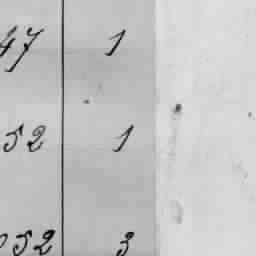 47 1
52 1
52 3